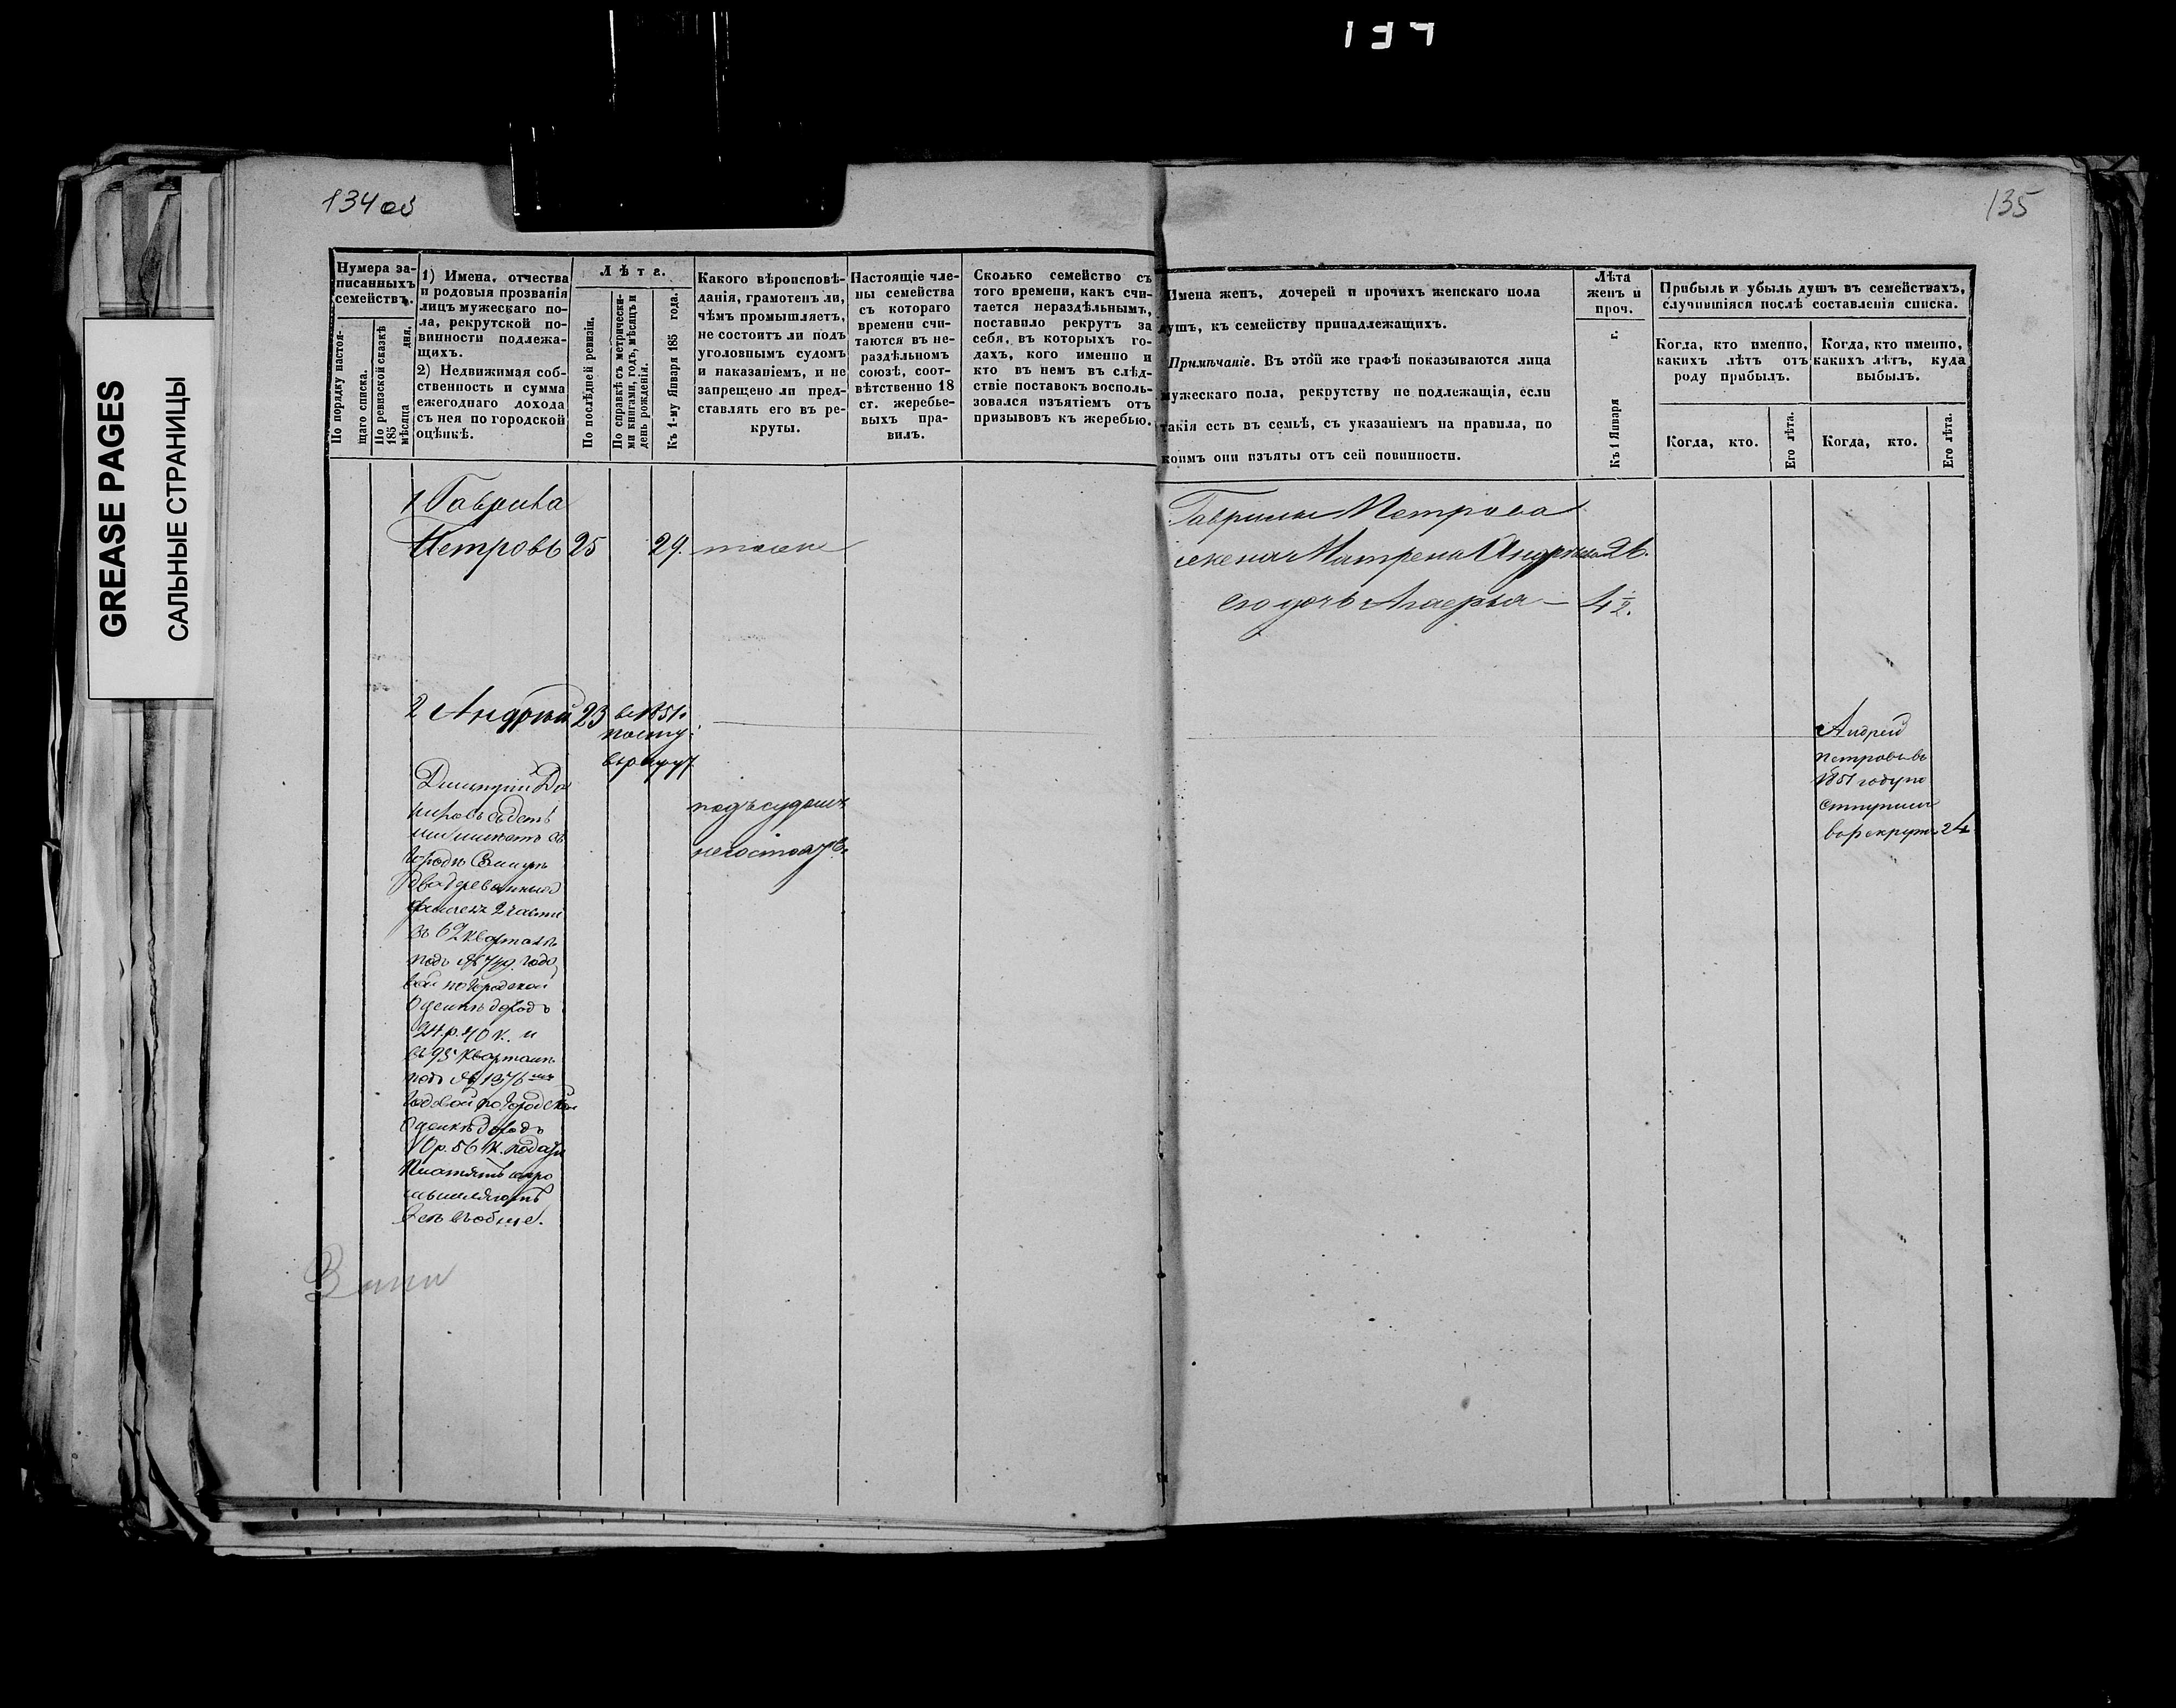 134
GREASE PAGES
САЛЬНЫЕ СТРАНИЦЫ
134 об
Нумера за-
писанныхъ
семействъ.
По порядку настоя-
щаго списка.
По ревизской сказкѣ
185 мѣсяца дня.
1) Имена, отчества
и родовыя прозванія
лицъ мужескаго по-
ла, рекрутской по-
винности подлежа-
щихъ.
2) Недвижимая соб-
ственность и сумма
ежегоднаго дохода
съ нея по городской
оцѣнкѣ.
Лѣта.
По послѣдней ревизіи.
По справкѣ съ метрически-
ми книгами, годъ, мѣсяцъ и
день рожденія.
Къ 1-му Января 185 года.
Какого вѣроисповѣ-
данія, грамотенъ ли,
чѣмъ промышляетъ,
не состоитъ ли подъ
уголовнымъ судомъ
и наказаніемъ, и не
запрещено ли пред-
ставлять его въ ре-
круты.
Настоящіе чле-
ны семейства
съ котораго
времени счи-
таются въ не-
раздѣльномъ
союзѣ, соот-
вѣтственно 18
ст. жеребье-
выхъ пра-
вилъ.
Сколько семейство съ
того времени, какъ счи-
тается нераздѣльнымъ,
поставило рекрутъ за
себя, въ которыхъ го-
дахъ, кого именно и
кто въ немъ въ слѣд-
ствіе поставокъ восполь-
зовался изъятіемъ отъ
призывовъ къ жеребью.
1 Гаврила
Петровъ 25 29.
2 Андрей 23 въ 1851.
посту.
въ рекрут
Дмитрій
городѣ
два деревянныя
2 части
въ 62 квартале
подъ № годо
вой по городской
оценкѣ доходъ
24 р. 40 к. и
въ 95 квартале
подъ № 1376
годовой по городской
оценкѣ доходъ
10 р. 56 к. подати
платятъ и про
мышляютъ
все въ обще.
подъ судомъ
не состоятъ.
135
Имена женъ, дочерей и прочихъ женскаго пола
душъ, къ семейству принадлежащихъ.
Примѣчаніе. Въ этой же графѣ показываются лица
мужескаго пола, рекрутству не подлежащія, если
такія есть въ семьѣ, съ указаніемъ на правила, по
коимъ они изъяты отъ сей повинности.
Лѣта
женъ и
проч.
Къ 1 Января г.
Прибыль и убыль душъ въ семействахъ,
случившіяся послѣ составленія списка.
Когда, кто именно,
какихъ лѣтъ отъ
роду прибылъ.
Когда, кто именно,
какихъ лѣтъ, куда
выбылъ.
Когда, кто.
Его лѣта.
Когда, кто.
Его лѣта.
Гаврилы Петрова
жена Матрена 26.
его дочь — 4 1/2.
Андрей
Петровъ въ
1851 году по
ступилъ
въ рекруты 24